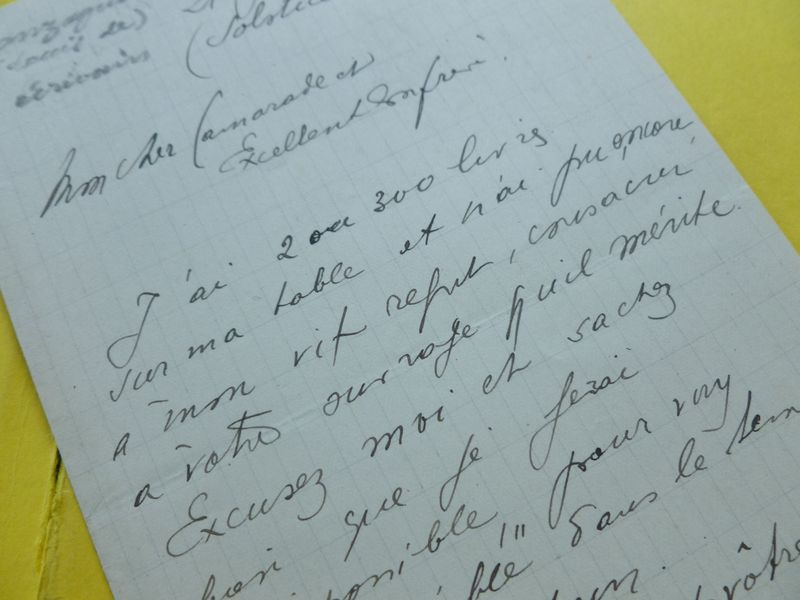 écrivains (Solstice
Mon cher Camarade et
Excellent Confrère.
J'ai 2 ou 300 livres
sur ma table et n'ai pu encore,
à mon vif regret, consacrer,
à votre ouvrage qu'il mérite.
Excusez moi et sachez
bien que je ferai
possible pour
dans le
vôtre